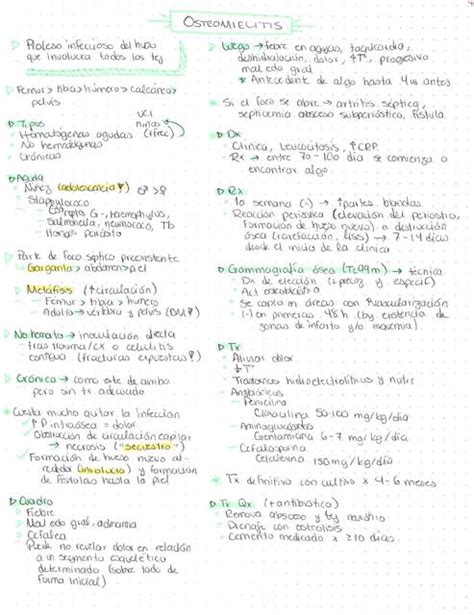 OSTEOMIELITIS
Proceso infeccioso del hueso
que involucra todos los tej
Femur > tibia > húmero > calcáneo >
pelvis
Tipos
UCI
niños
Hematógenas agudas (+frec)
No hematógenas
Crónicas
Aguda
Niñez (adolescencia) ♂ > ♀
Staphylococo
G-, Haemophylus,
Salmonella, neumococo, Tb
Hongos parásito
Parte de foco séptico preexistente
Garganta > abdomen > piel
Metáfisis (↑circulación)
Femur > tibia > humero
Adulto → vértebra y pelvis (DM)
No hemato → inoculación directa
tras trauma/cx o celulitis
contigua (fracturas expuestas)
Crónica → como este de arriba
pero sin tx adecuado
* Cuesta mucho quitar la infección
↑ P intraósea = dolor
Obstrucción de circulación capilar
→ necrosis ("secuestro")
Formación de hueso nuevo al-
rededor (involucro) y formación
de fístulas hasta la piel
Cuadro
Fiebre
Mal edo gral, adinamia
Cefalea
Puede no revelar dolor en relación
a un segmento esquelético
determinado (sobre todo de
forma inicial)
Luego → fiebre en agujas, taquicardia,
deshidratación, dolor, ↑T°, progresivo
mal edo gral
* Antecedente de algo hasta 4 antes
* Si el foco se abre → artritis séptica,
septicemia absceso subperióstico, fístula
Dx
Clínica, Leucocitosis, ↑CRP
Rx → entre 7o - 10o día se comienza a
encontrar algo
Rx
1a semana (-) → ↑partes blandas
Reacción perióstica (elevación del periostio,
formación de hueso nuevo) o destrucción
ósea (rarefacción, lisis) → 7-14 días
desde el inicio de la clínica
Gammagrafía ósea (Tc99m) → técnica
Dx de elección (+precoz y especif)
Act osteoblástica
Se capta en áreas con ↑vascularización
(-) en primeras 48h (by existencia de
zonas de infarto y/o isquemia)
Tx
Aliviar dolor
↓T°
Trastornos hidroelectrolíticos y nutri
Antibióticos
- Penicilina
50-100 mg/kg/día
- Aminoglucósidos
Gentamicina 6-7 mg/kg/día
- Cefalosporina
150 mg/kg/día
* Tx definitivo con cultivo x 4-6 meses
Tx Qx (+antibiótico)
Remova absceso y tej necrótico
Drenaje con osteolisis
Cemento medicado x ≥10 días